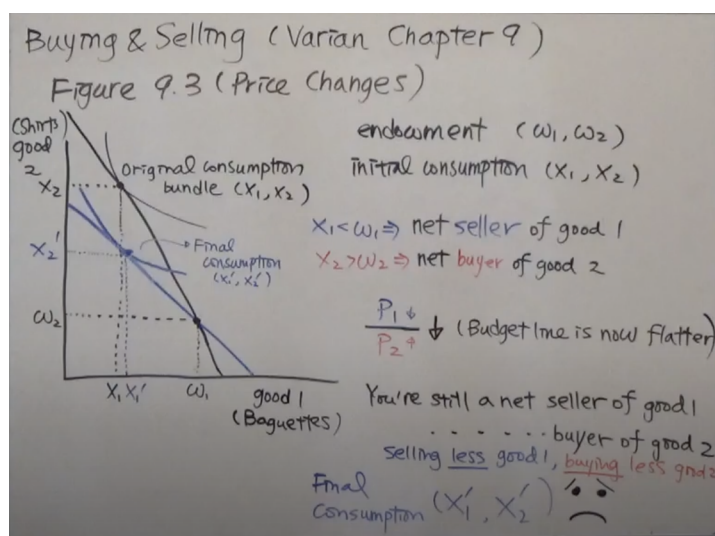 Buying & Selling (Varian Chapter 9)
Figure 9.3 (Price Changes)
(Shirts)
good
2
X₂
X₂'
ω₂
Original consumption
bundle (X₁, X₂)
Final
consumption
(X₁', X₂')
X₁ X₁' ω₁
good 1
(Baguettes)
endowment (ω₁, ω₂)
initial consumption (X₁, X₂)
X₁ < ω₁ ⇒ net seller of good 1
X₂ > ω₂ ⇒ net buyer of good 2
P₁↓
P₂↑
↓ (Budget line is now flatter)
You're still a net seller of good 1
. . . . . . . buyer of good 2
selling less good 1, buying less good 2
Final
Consumption (X₁', X₂')